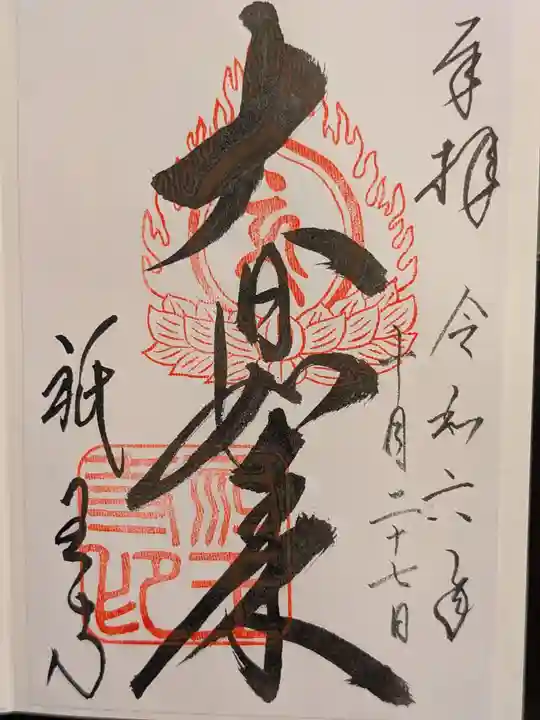 奉拝 令和六年
十月二十七日
大日如来
祇王寺